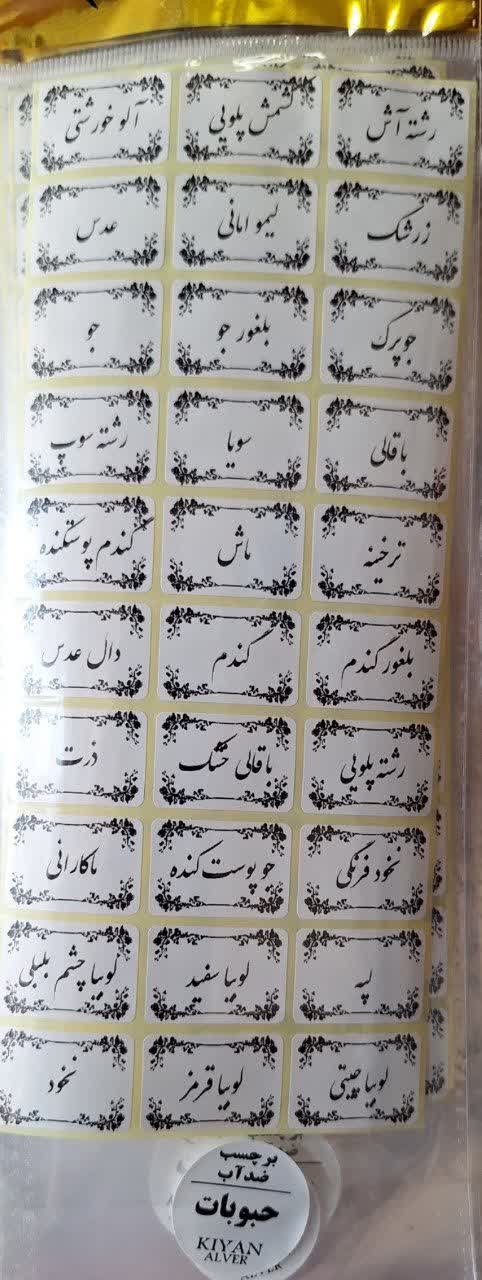 رشته آش
کشمش پلویی
آلو خورشتی
زرشک
لیمو امانی
عدس
جوپرک
بلغور جو
جو
باقالی
سویا
رشته سوپ
ترخینه
ماش
گندم پوستکنده
بلغور گندم
گندم
دال عدس
رشته پلویی
باقالی خشک
ذرت
نخود فرنگی
جو پوست کنده
ماکارانی
لپه
لوبیا سفید
لوبیا چشم بلبلی
لوبیا چیتی
لوبیا قرمز
نخود
برچسب
ضدآب
حبوبات
KIYAN
ALVER